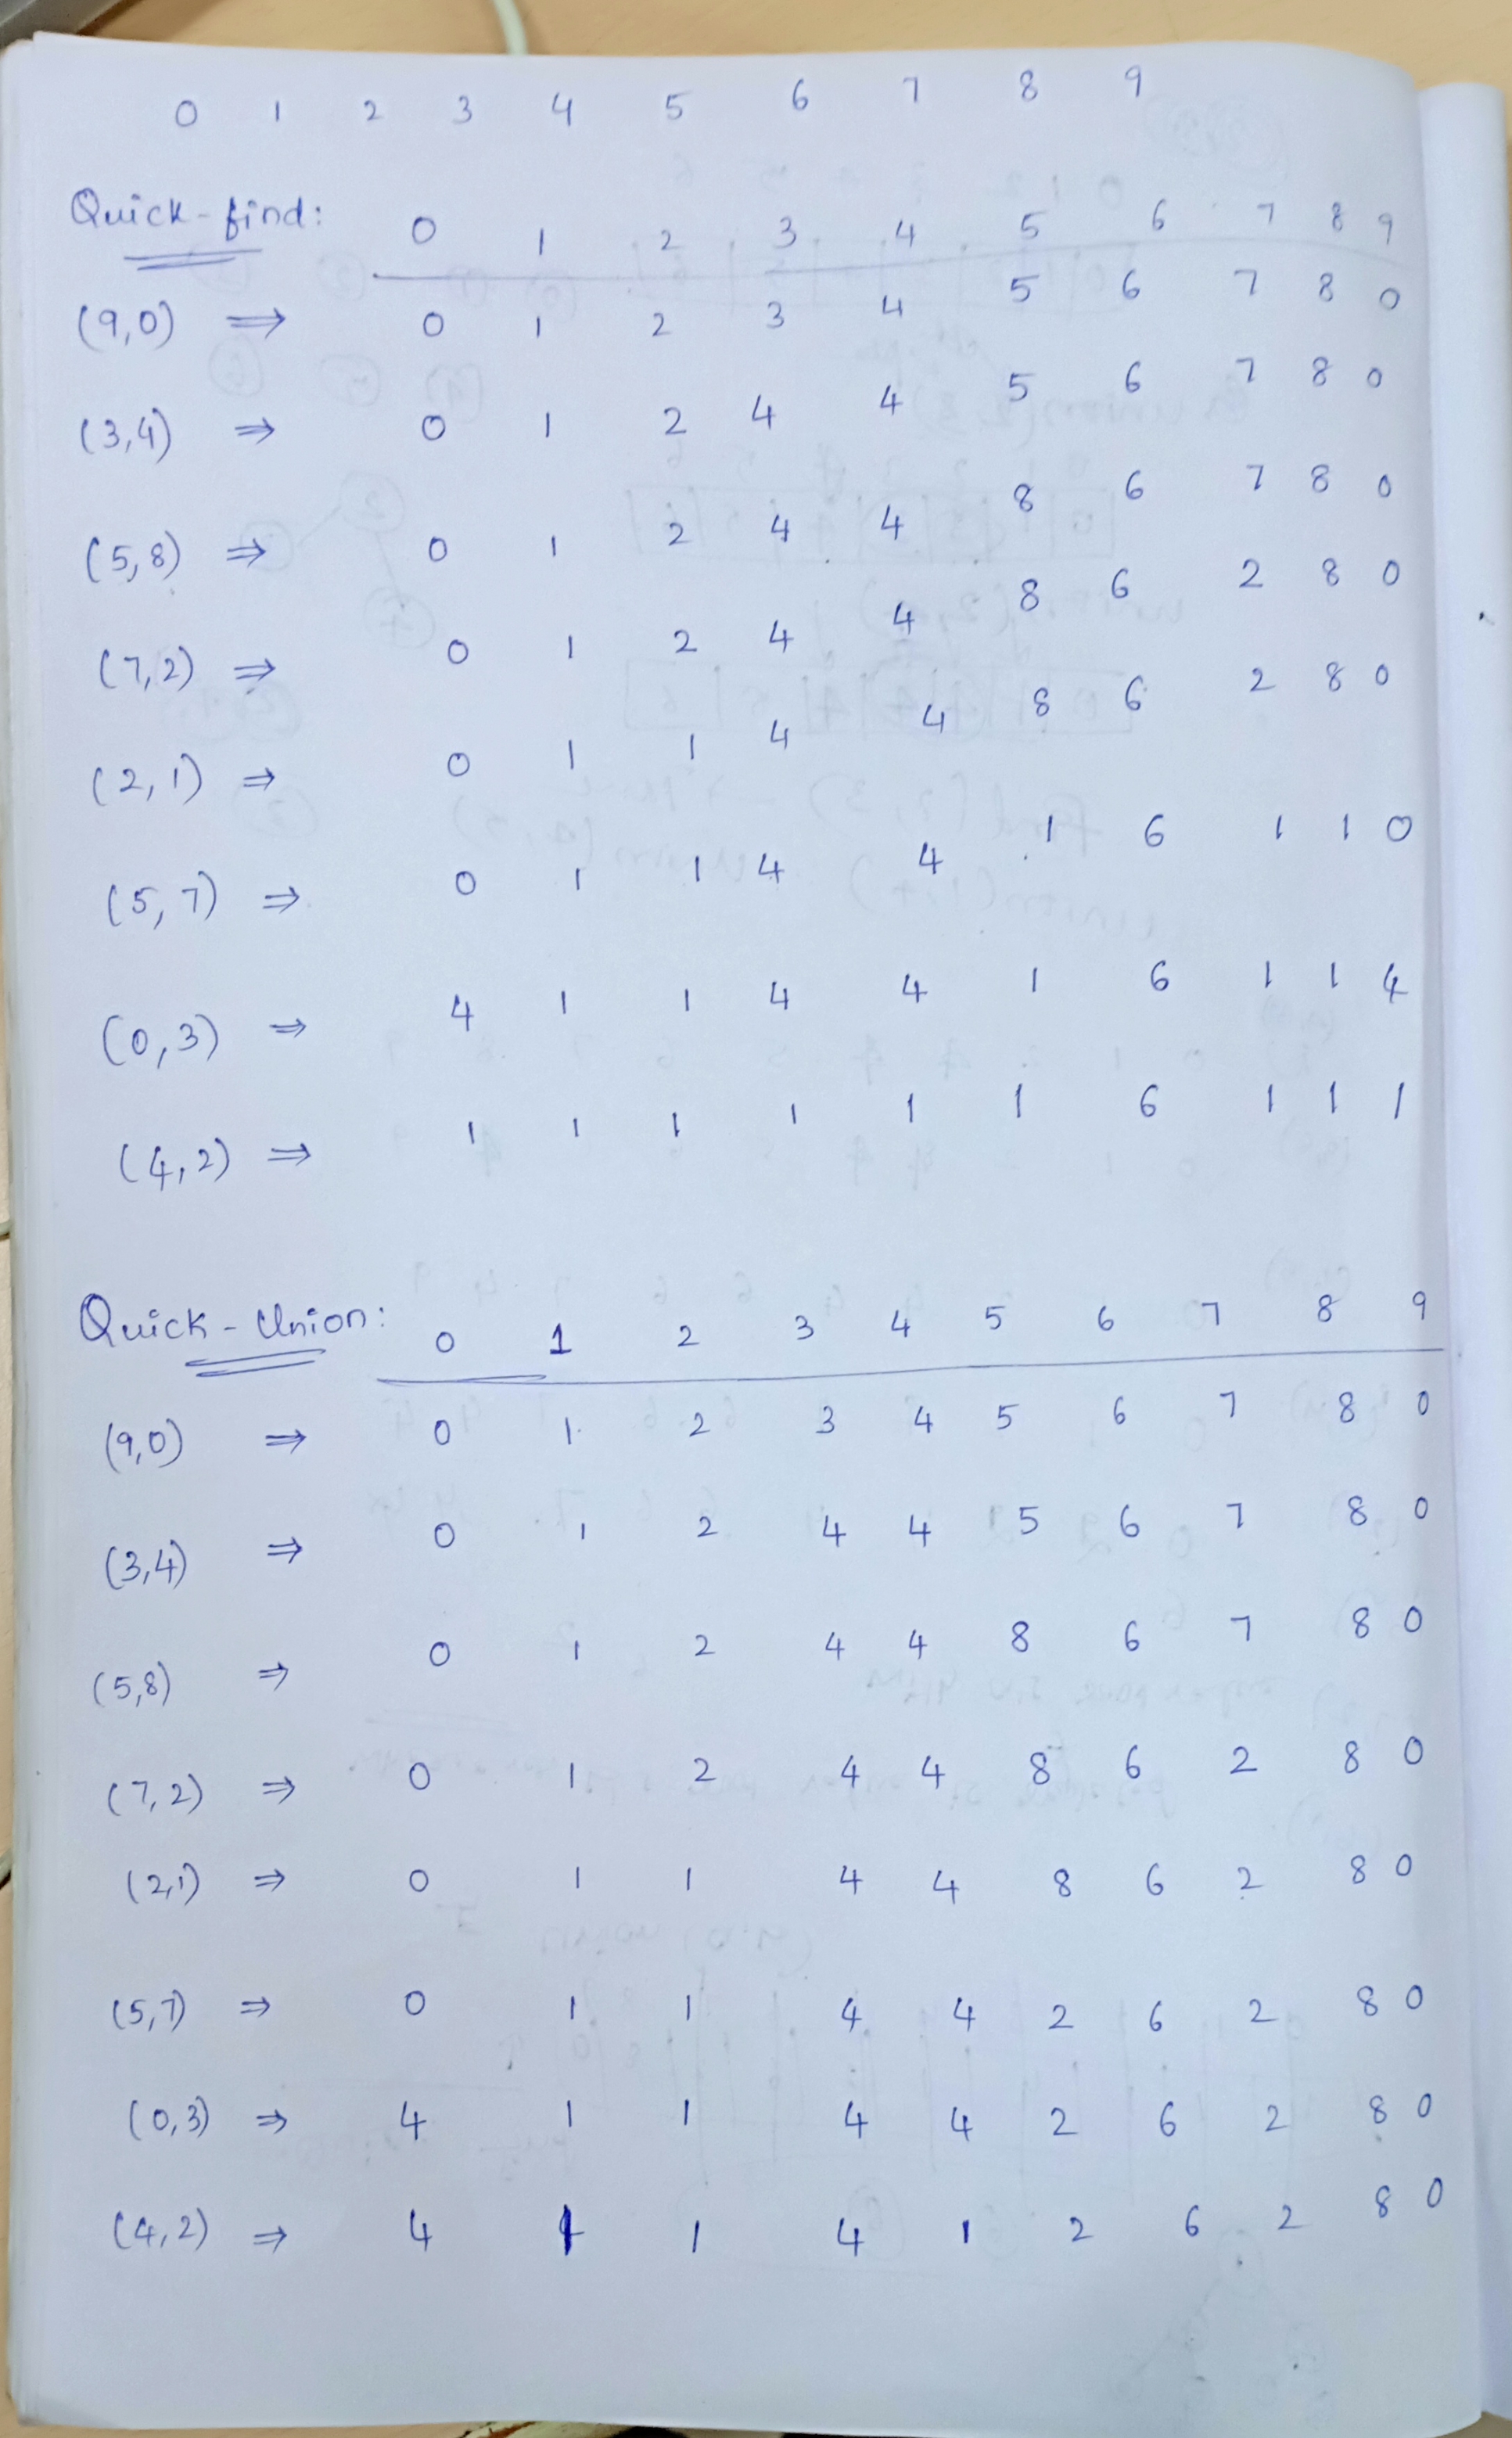 0 1 2 3 4 5 6 7 8 9
Quick-find: 0 1 2 3 4 5 6 7 8 9
(9,0) ⇒ 0 1 2 3 4 5 6 7 8 0
(3,4) ⇒ 0 1 2 4 4 5 6 7 8 0
(5,8) ⇒ 0 1 2 4 4 8 6 7 8 0
(7,2) ⇒ 0 1 2 4 4 8 6 2 8 0
(2,1) ⇒ 0 1 1 4 4 8 6 2 8 0
(5,7) ⇒ 0 1 1 4 4 1 6 1 1 0
(0,3) ⇒ 4 1 1 4 4 1 6 1 1 4
(4,2) ⇒ 1 1 1 1 1 1 6 1 1 1
Quick-Union: 0 1 2 3 4 5 6 7 8 9
(9,0) ⇒ 0 1 2 3 4 5 6 7 8 0
(3,4) ⇒ 0 1 2 4 4 5 6 7 8 0
(5,8) ⇒ 0 1 2 4 4 8 6 7 8 0
(7,2) ⇒ 0 1 2 4 4 8 6 2 8 0
(2,1) ⇒ 0 1 1 4 4 8 6 2 8 0
(5,7) ⇒ 0 1 1 4 4 2 6 2 8 0
(0,3) ⇒ 4 1 1 4 4 2 6 2 8 0
(4,2) ⇒ 4 1 1 4 1 2 6 2 8 0